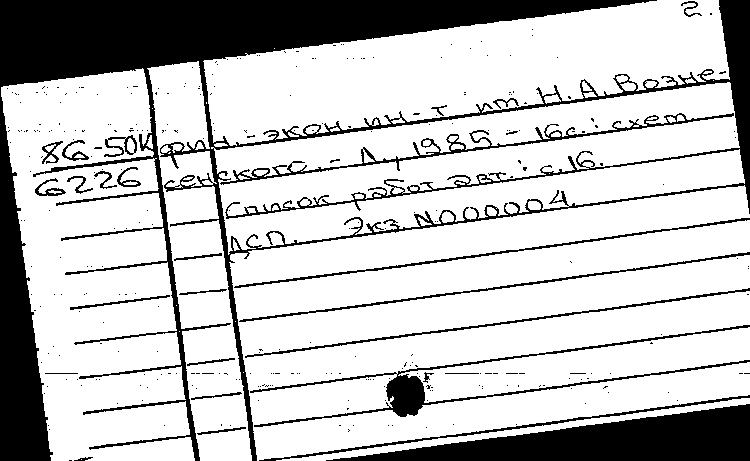 2.
86-50К фин.-экон. ин-т им. Н.А. Возне-
6226 сенского. - Л., 1985. - 16с.: схем.
Список работ авт.: с.16.
ДСП. Экз. N000004.